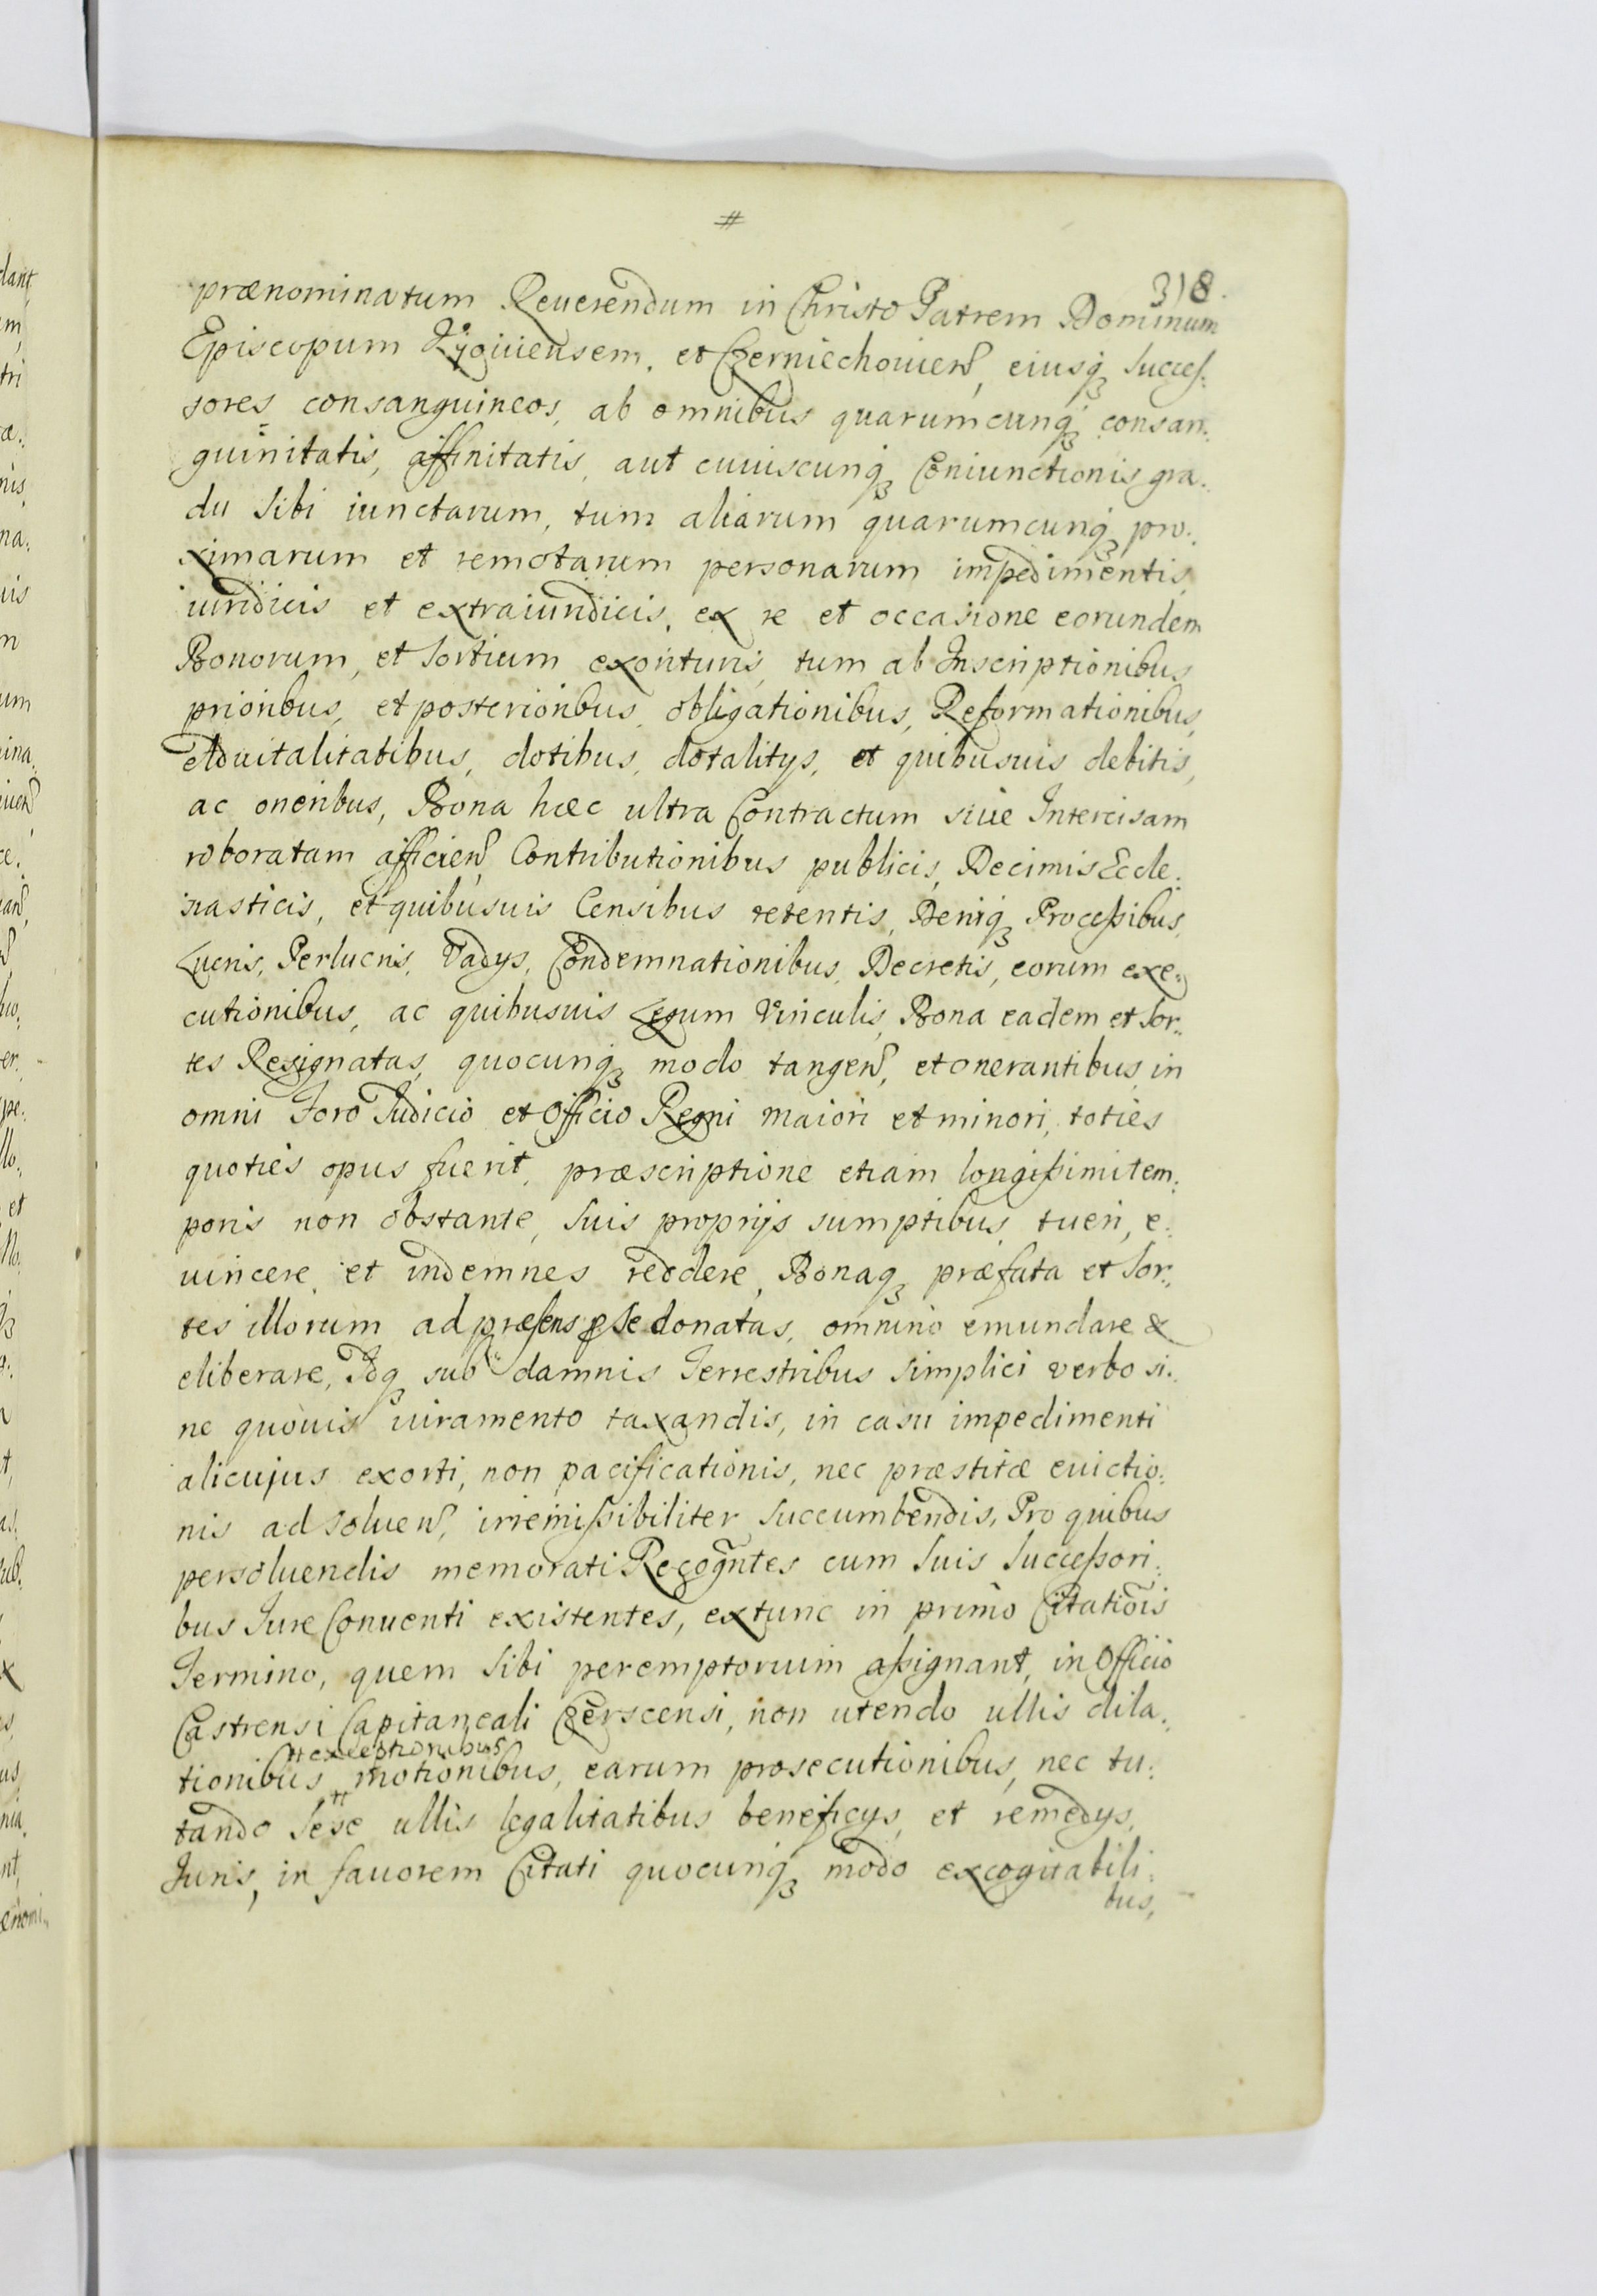 #
318.
prænominatum Reuerendum in Christo Patrem Dominum
Episcopum Kÿouiensem, et Czerniechouien̄, eiusq₃ Succes:
sores consanguineos, ab omnibus quarumcunq₃ consan:
guinitatis, affinitatis, aut cuiuscunq₃ Coniunctionis gra:
du Sibi iunctarum, tum aliarum quarumcunq₃ pro:
ximarum et remotarum personarum impedimentis
iuridicis et extraiuridicis, ex re et occasione eorundem
Bonorum, et Sortium exorituris, tum ab Inscriptionibus
prioribus, et posterioribus, obligationibus, Reformationibus,
aduitalitatibus, dotibus, dotalitys, et quibusuis debitis,
ac oneribus, Bona hæc ultra Contractum siue Intercisam
roboratam afficien̄, Contributionibus publicis, Decimis Eccle:
siasticis, et quibusuis Censibus retentis, Deniq₃ Processibus,
Lucris, Perlucris, Vadys, Condemnationibus, Decretis, eorum exe:
cutionibus, ac quibusuis Legum Vinculis, Bona eadem et Sor:
tes Resignatas, quocunq₃ modo tangen̄, et onerantibus, in
omni Foro Judicio et Officio Regni maiori et minori, toties
quoties opus fuerit, præscriptione etiam longissimi tem:
poris non obstante, Suis proprijs sumptibus, tueri, e:
uincere, et indemnes reddere, Bonaq₃ præfata et Sor:
tes illorum ad præsens p se donatas, omnino emundare &
eliberare, Idq₃ sub damnis Terrestribus simplici verbo si:
ne quouis iuramento taxandis, in casu impedimenti
alicujus exorti, non pacificationis, nec præstitæ euictio:
nis ad soluen̄, irremissibiliter Succumbendis, Pro quibus
persoluendis memorati Recogn̄tes cum Suis Successori:
bus Jure Conuenti existentes, extunc in primo Citatiōis
Termino, quem Sibi peremptorium assignant, in Officio
Castrensi Capitaneali Czerscensi, non utendo ullis dila:
# exceptionibus
tionibus # motionibus, earum prosecutionibus, nec tu:
tando Sese ullis legalitatibus beneficys, et remedys,
Juris, in fauorem Citati quocunq₃ modo excogitabili:
bus,